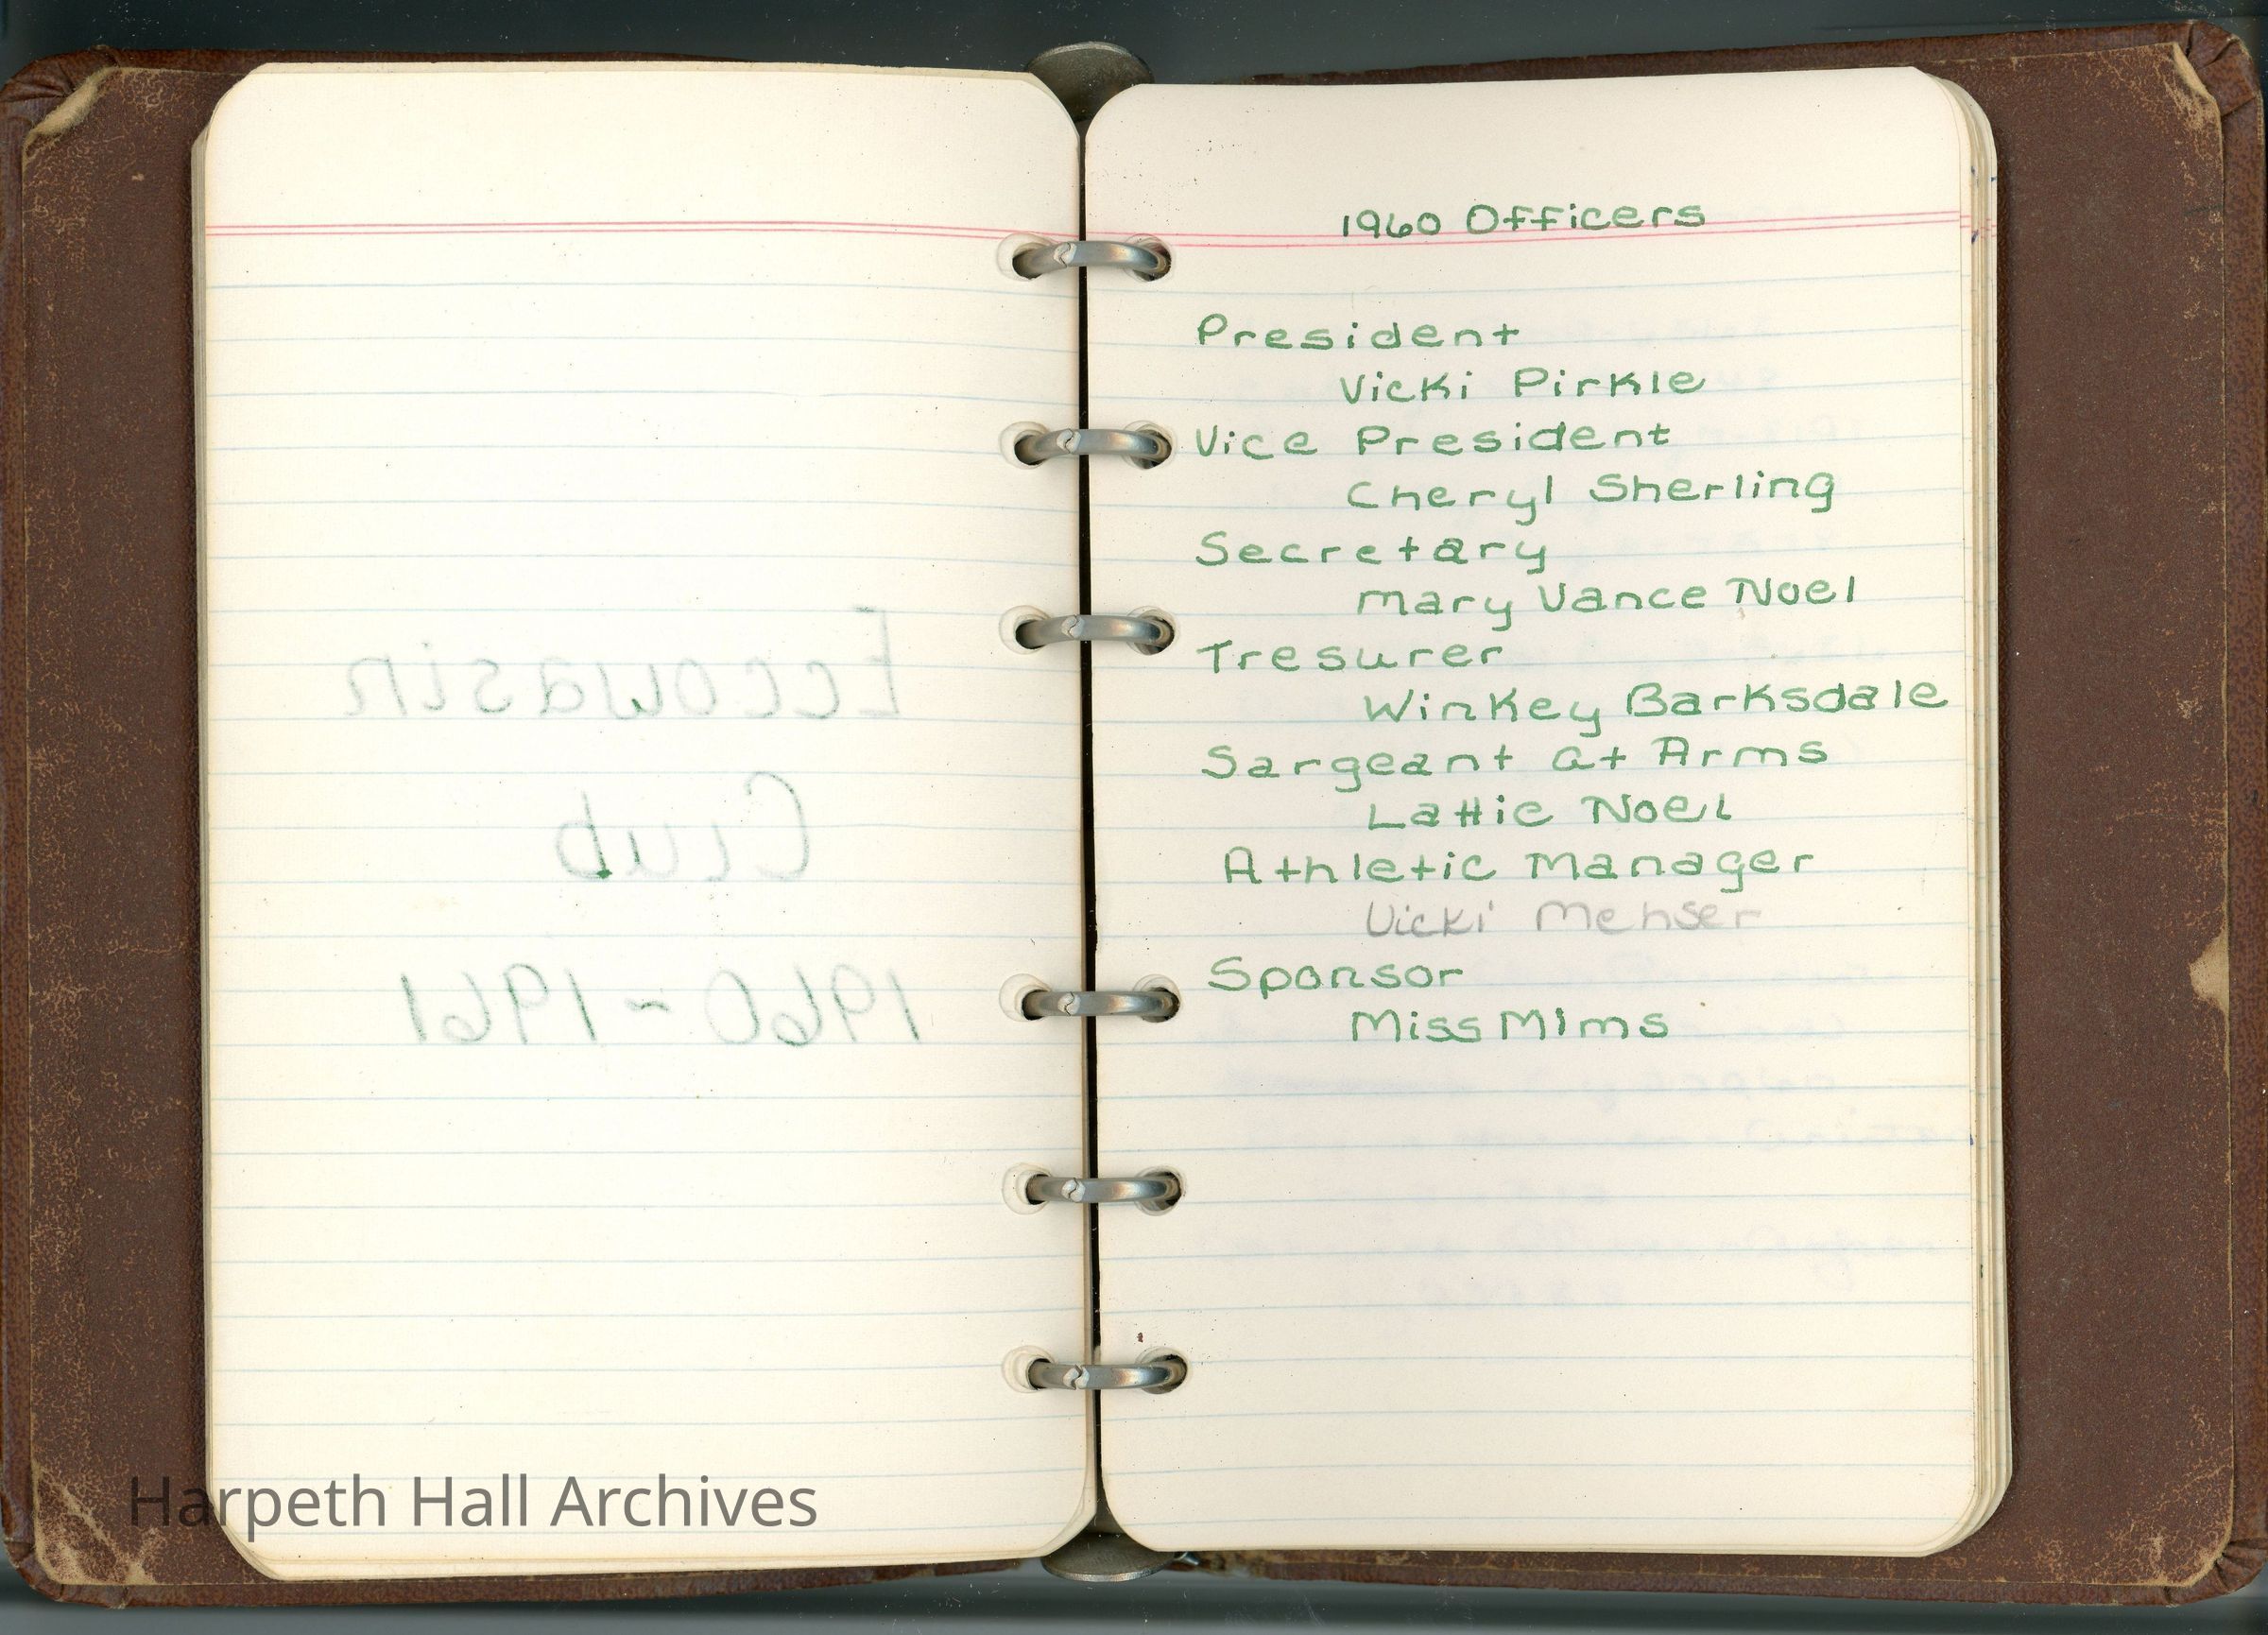 Eccowasin
Club
1960-1961
1960 Officers
President
Vicki Pirkle
Vice President
Cheryl Sherling
Secretary
Mary Vance Noel
Tresurer
Winkey Barksdale
Sargeant at Arms
Lattie Noel
Athletic Manager
Vicki Mehser
Sponsor
Miss Mims
Harpeth Hall Archives